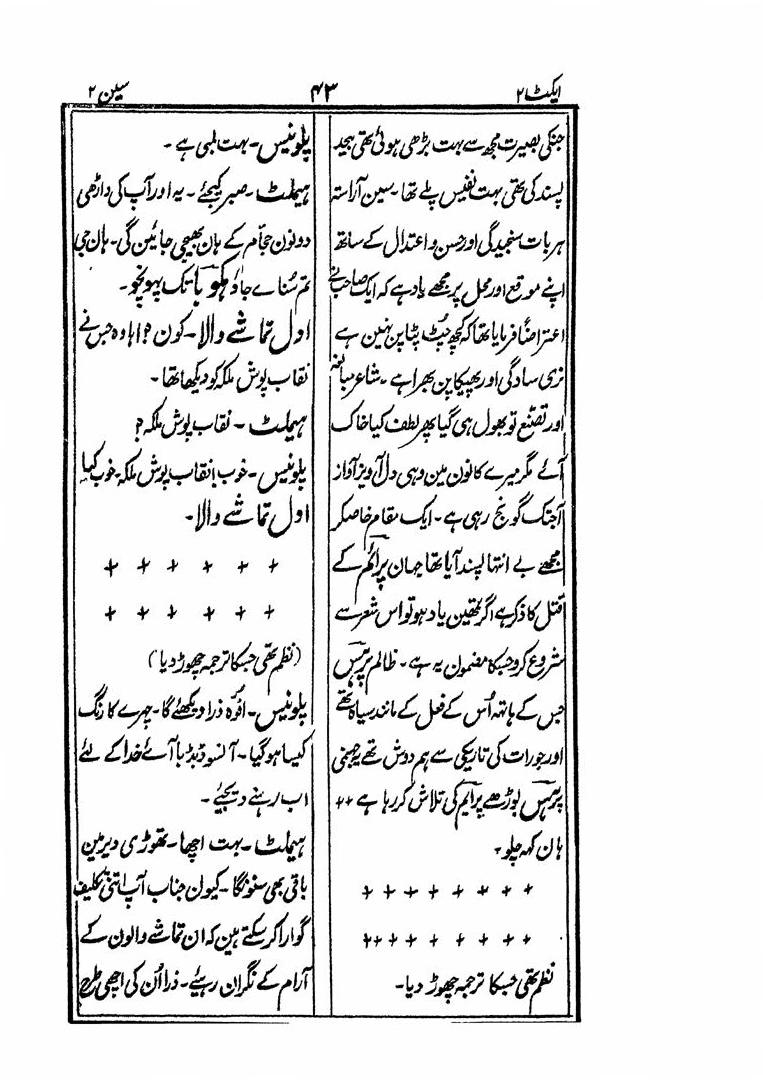 ایکٹ ۲
۴۳
سین ۲
جنکی بصیرت مجھ سے بہت بڑھی ہوئی تھی بیحد
پسند کی تھی بہت نفیس پلے تھا۔ سین آراستہ
ہر بات سنجیدگی اور حسن و اعتدال کے ساتھ
اپنے موقع اور محل پر مجھے یاد ہے کہ ایک صاحب نے
اعتراضاً فرمایا تھا کہ کچھ چٹ پٹا پن نہین ہے
نری سادگی اور پھیکا پن بھرا ہے۔ شاعر مبالغہ
اور تصنع تو بھول ہی گیا پھر لطف کیا خاک
آئے مگر میرے کانون مین وہی دل آویز آواز
آجتک گونج رہی ہے۔ ایک مقام خاصکر
مجھے بے انتہا پسند آیا تھا جہان پرائم کے
قتل کا ذکر ہے اگر تمھین یاد ہو تو اس شعر سے
شروع کرو جسکا مضمون یہ ہے۔ ظالم پرہس
جس کے ہاتھ اُس کے فعل کے مانند سیاہ تھے
اور جو رات کی تاریکی سے ہم دوش تھے یہ جہنمی
پرہس بوڑھے پرایم کی تلاش کر رہا ہے ++
ہان کہہ چلو۔
+ + + + + + + +
+ + + + + + + ++
نظم تھی جسکا ترجمہ چھوڑ دیا۔
پلونیس۔ بہت لمبی ہے۔
ہیملٹ۔ صبر کیجئے۔ یہ اور آپ کی داڑھی
دونون حجّام کے ہان بھیجی جائین گی۔ ہان جی
تم سُناے جاؤ ہکوبا تک پہونچو۔
اول تماشے والا۔ کون؟ اہا وہ جس نے
نقاب پوش ملکہ کو دیکھا تھا۔
ہیملٹ۔ نقاب پوش ملکہ؟
پلونیس۔ خوب! نقاب پوش ملکہ۔ خوب کہا
اول تماشے والا۔
+ + + + + +
+ + + + + +
(نظم تھی جسکا ترجمہ چھوڑ دیا)
پلونیس۔ افوہ ذرا دیکھئے گا۔ چہرے کا رنگ
کیسا ہو گیا۔ آنسو ڈبڈبا آئے خدا کے لئے
اب رہنے دیجئے۔
ہیملٹ۔ بہت اچھا۔ تھوڑی دیر مین
باقی بھی سنونگا۔ کیون جناب آپ اتنی تکلیف
گوارا کر سکتے ہین کہ ان تماشے والون کے
آرام کے نگران رہیے۔ ذرا اُن کی اچھی طرح